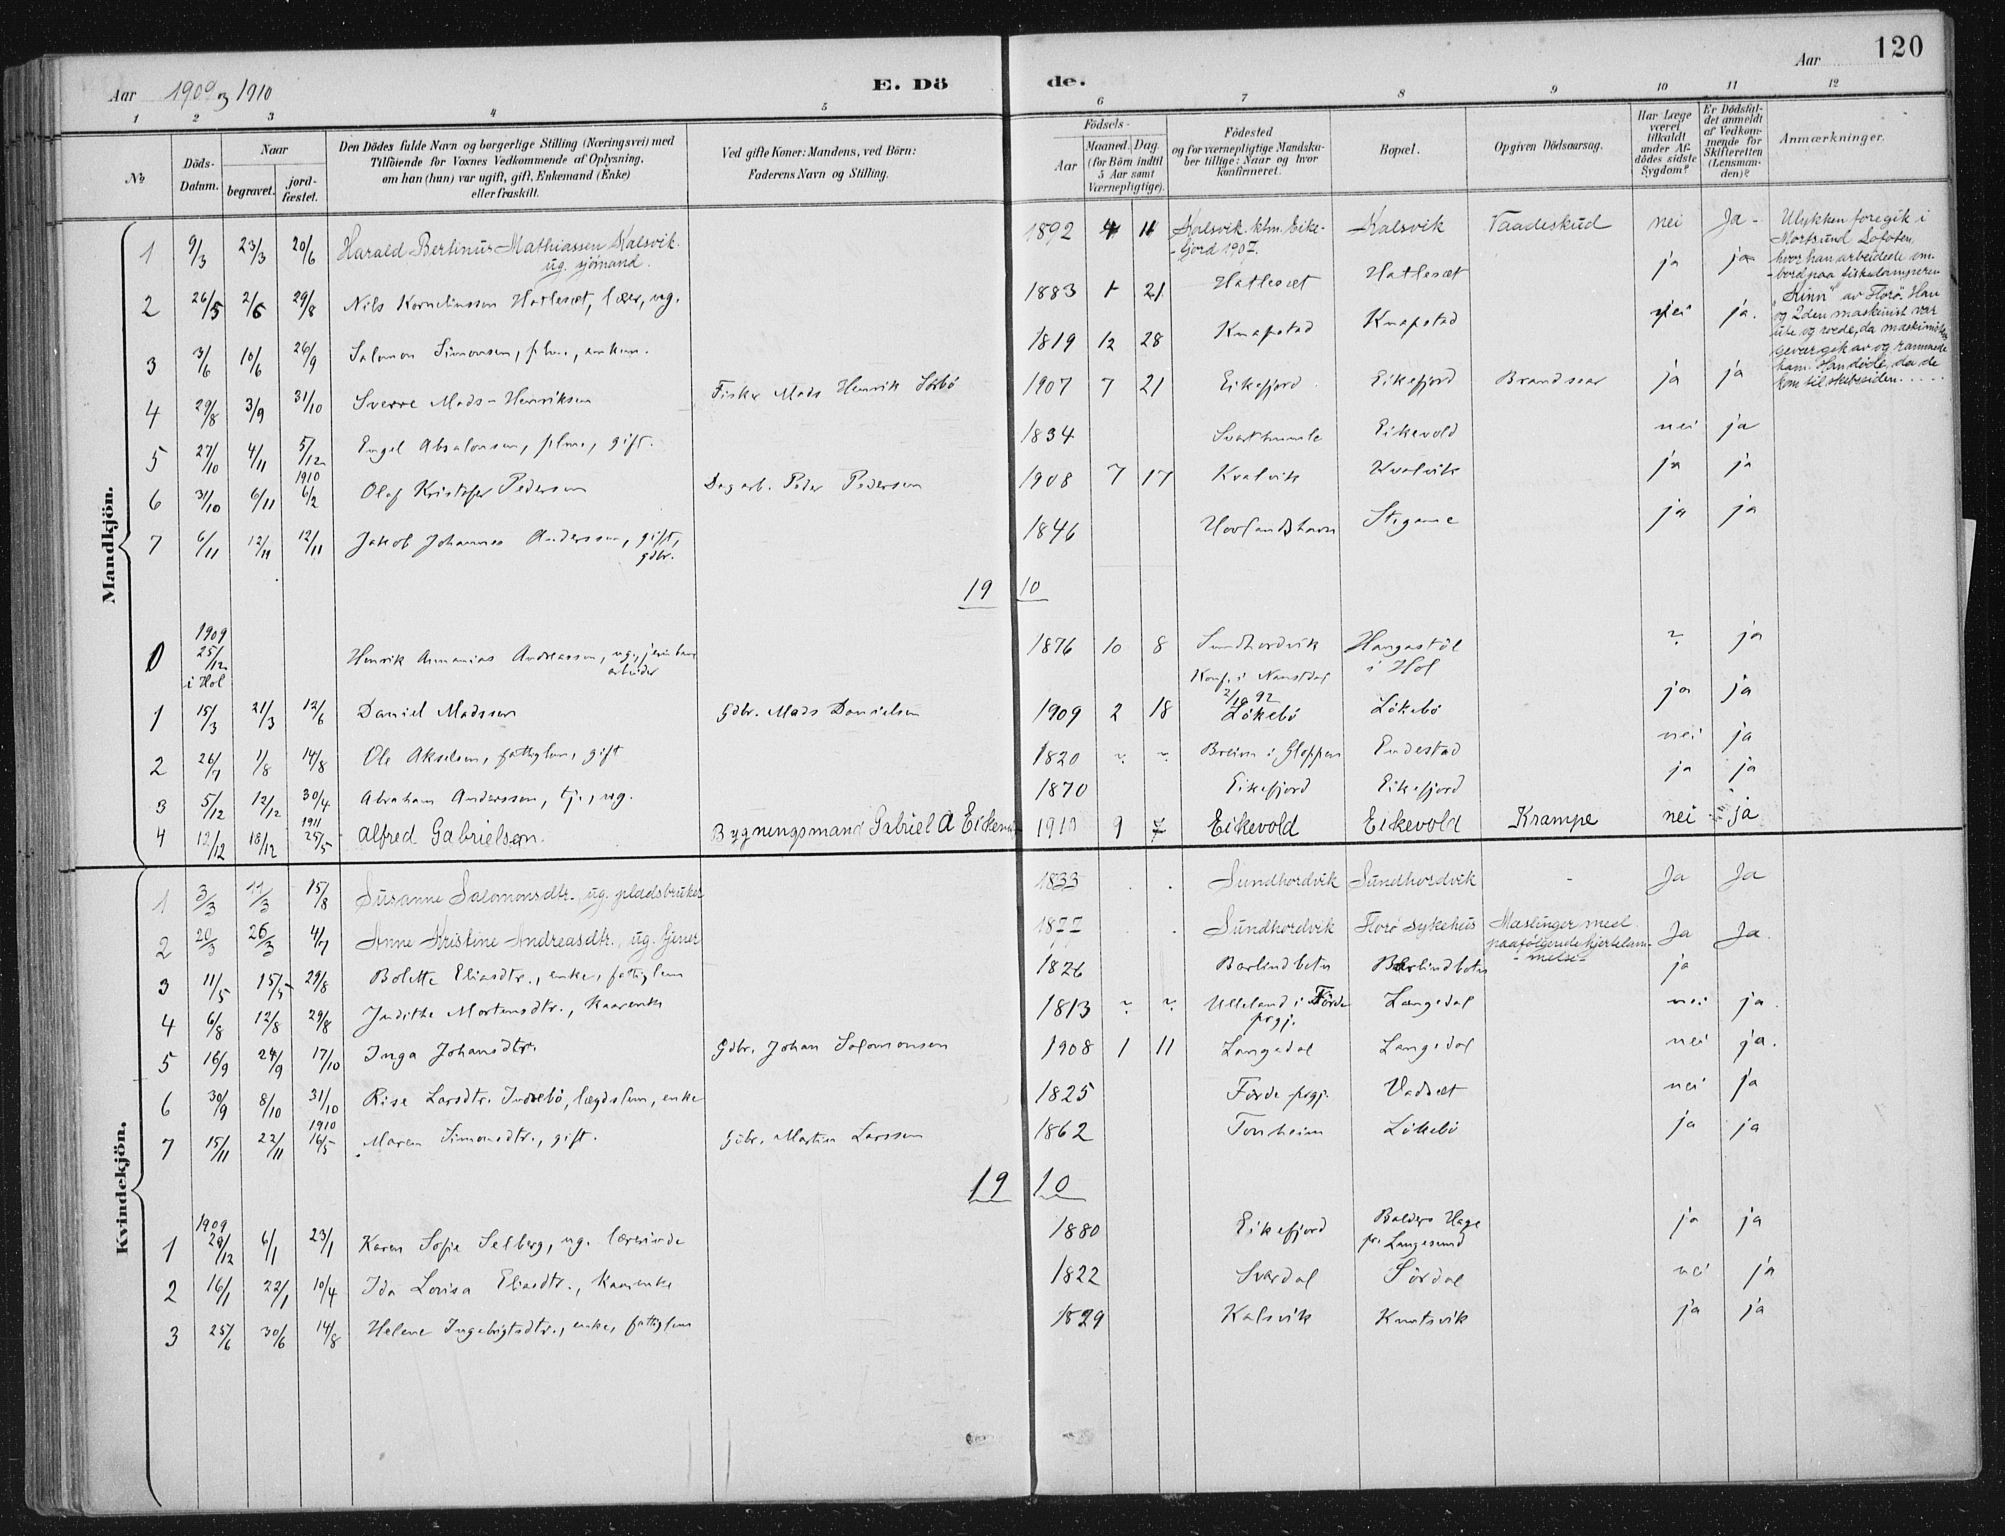 120
Aar 1909 og 1910
E. Dö
de.
Aar
1 2 3 4 5 6 7 8 9 10 11 12
No
Döds-
Datum.
Naar
begravet.
jord-
fæstet.
Den Dödes fulde Navn og borgerlige Stilling (Næringsvei) med
Tilföiende for Voxnes Vedkommende af Oplysning,
om han (hun) var ugift, gift, Enkemand (Enke)
eller fraskilt.
Ved gifte Koner: Mandens, ved Börn:
Faderens Navn og Stilling.
Födsels-
Aar
Maaned. Dag.
(for Börn indtil
5 Aar samt
Værnepligtige).
Födested
og for værnepligtige Mandska-
ber tillige: Naar og hvor
konfirmeret.
Bopæl.
Opgiven Dödsaarsag.
Har Læge
været
tilkaldt
under Af-
dödes sidste
Sygdom?
Er Dödsfal-
det anmeldt
af Vedkom-
mende for
Skifteretten
(Lensman-
den)?
Anmærkninger.
Mandkjön.
1 9/3 23/3 20/6 Harald Bertinus Mathiassen Kalsvik. 1892 4 11 Kalsvik. kfm. Eike- Kalsvik Vaadeskud nei Ja-
ug. sjömand. -fjord 1907.
Ulykken foregik i
Mortsund Lofoten,
hvor han arbeidede om-
-bord paa fiskedamperen
"Kinn" av Florö. Han
og 2den maskinist var
ute og roede, da maskinistens
gevær gik av og rammede
ham. Han döde, da de
kom til skibssiden.....
2 26/5 2/6 29/8 Nils Korneliussen Hatleset, lærer, ug. 1883 1 21 Hatleset Hatleset ja ja
3 3/6 10/6 26/9 Salomon Simonsen, plm., enkem. 1819 12 28 Knapstad Knapstad nei ja.
4 29/8 3/9 31/10 Sverre Mads-Henriksen Fisker Mads Henrik Solbö 1907 7 21 Eikefjord Eikefjord Brandsaar ja ja
5 27/10 4/11 5/12 Engel Absalonsen, plm., gift. 1834 Svarthumle Eikevold nei ja
6 31/10 6/11 1910 6/2 Olaf Kristofer Pedersen Dagarb. Peder Pedersen 1908 7 17 Kvalvik Kvalvik ja ja
7 6/11 12/11 12/11 Jakob Johannes Anderssen, gift, gdbr. 1846 Hovlandshavn Stegane ja ja
19 10
0 1909 25/12 i Hol Henrik Annanias Andreassen, ug., jernbane 1876 10 8 Sundhordvik Haugastöl ? ja
arbeider i Hol
Konf. i Naustdal
2/10 92
1 15/3 21/3 12/6 Daniel Madssen Gdbr. Mads Danielsen 1909 2 18 Lökebö Lökebö ja ja
2 26/7 1/8 14/8 Ole Akselsen, fattiglem, gift 1820 ? ? Breim i Gloppen Endestad nei ja
3 5/12 12/12 30/4 Abraham Anderssen, tj., ug. 1870 Eikefjord Eikefjord ja ja
4 12/12 18/12 1911 25/5 Alfred Gabrielsen. Bygningsmand Gabriel A Eikevold 1910 9 7 Eikevold Eikevold Krampe nei ja
Kvindekjön.
1 3/3 11/3 15/8 Susanne Salomonsdtr. ug. pladsbruker 1833 Sundhordvik Sundhordvik - Ja Ja
2 20/3 26/3 4/7 Anne Kristine Andreasdtr., ug. tjener 1877 Sundhordvik Florö Sykehus Mæslinger med Ja Ja.
paafölgende hjertelam-
-melse-
3 11/5 15/5 29/8 Bolette Eliasdtr., enke, fattiglem 1826 Barlindbotn Barlindbotn ja
4 6/8 12/8 29/8 Judithe Mortensdtr., kaarenke 1813 ? ? Ulleland i Förde Langedal nei ja.
prgj.
5 16/9 24/9 17/10 Inga Johansdtr. Gdbr. Johan Salomonsen 1908 1 11 Langedal Langedal nei ja.
6 30/9 8/10 31/10 Rise Larsdtr. Indrebö, lægdslem, enke 1825 Förde prgj. Vadset nei ja
7 15/11 22/11 1910 16/5 Maren Simonsdtr., gift. Gdbr. Martin Larssen 1862 Tonheim Lökebö ja ja
19 10
1 1909 29/12 6/1 23/1 Karen Sofie Selberg, ug. lærerinde 1880 Eikefjord Balders Hage ja ja
pr. Langesund
2 16/1 22/1 10/4 Ida Lovisa Eliasdtr., kaarenke 1822 Svardal Sördal nei ja
3 25/6 30/6 14/8 Helene Ingebrigtsdtr., enke, fattiglem 1829 Kalsvik Knutsvik ja ja